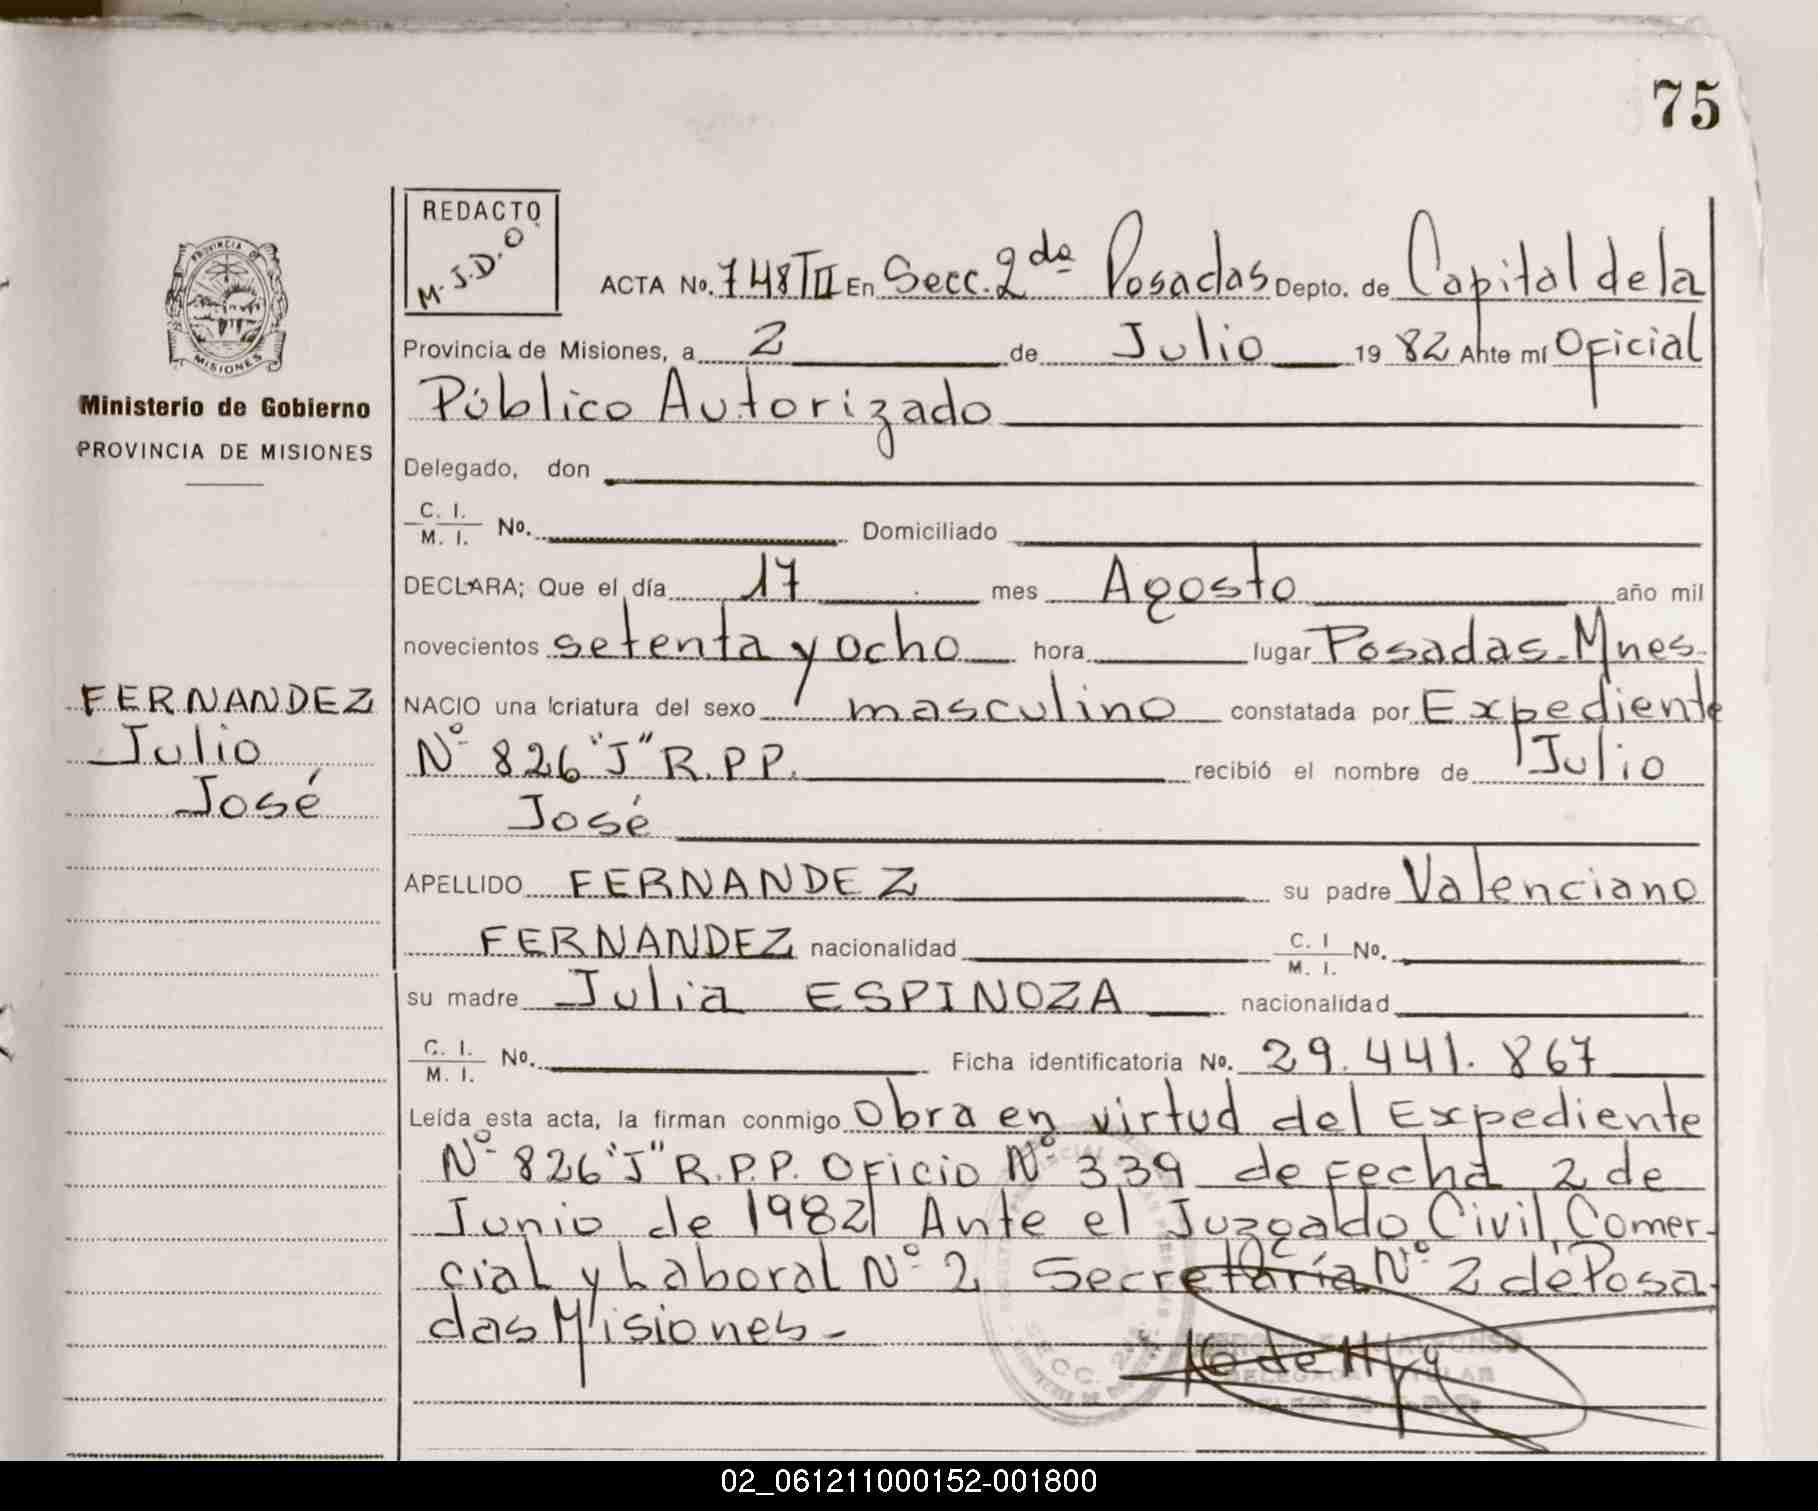 75
REDACTO
M.J.D.O.
PROVINCIA DE
MISIONES
Ministerio de Gobierno
PROVINCIA DE MISIONES
FERNANDEZ
Julio
José
ACTA No. 748TII En Secc. 2da Posadas Depto. de Capital de la
Provincia de Misiones, a 2 de Julio 1982 Ante mí Oficial
Público Autorizado
Delegado, don
C. I. / M. I. No. Domiciliado
DECLARA; Que el día 17 mes Agosto año mil
novecientos setenta y ocho hora lugar Posadas-Mnes-
NACIO una criatura del sexo masculino constatada por Expediente
Nº 826 "J" R.P.P. recibió el nombre de Julio
José
APELLIDO FERNANDEZ su padre Valenciano
FERNANDEZ nacionalidad C. I / M. I. No.
su madre Julia ESPINOZA nacionalidad
C. I. / M. I. No. Ficha identificatoria No. 29.441.867
Leída esta acta, la firman conmigo Obra en virtud del Expediente
Nº 826 "J" R.P.P. Oficio Nº 339 de fecha 2 de
Junio de 1982 Ante el Juzgado Civil, Comer-
cial y Laboral Nº 2 Secretaría Nº 2 de Posa-
das Misiones-
02_061211000152-001800